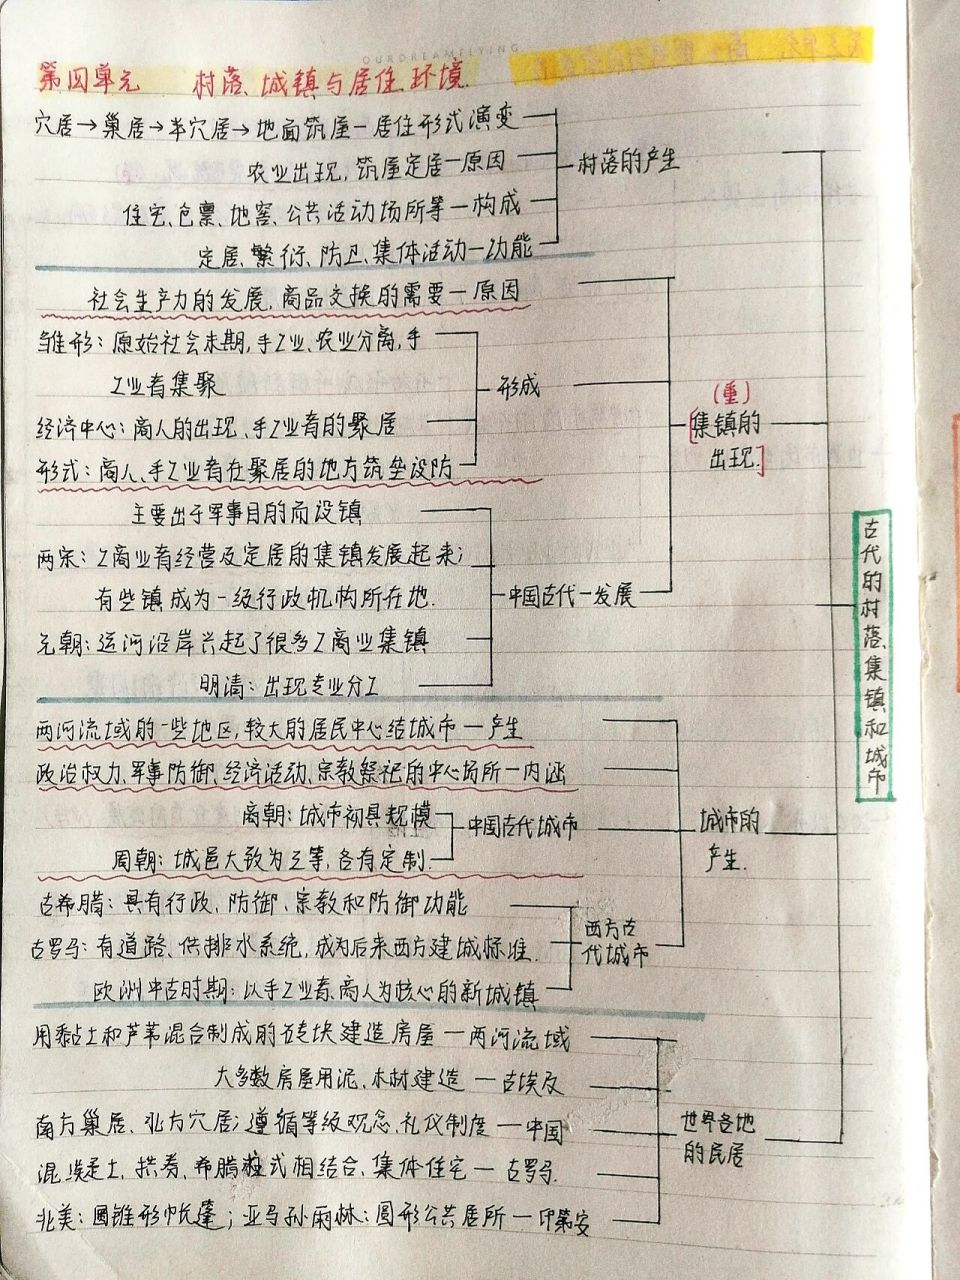 OURDREAMFLYING
第四单元 村落、城镇与居住环境.
穴居→巢居→半穴居→地面筑屋—居住形式演变
农业出现,筑屋定居—原因
村落的产生
住宅、仓禀、地窖、公共活动场所等—构成
定居、繁衍、防卫、集体活动—功能
社会生产力的发展,商品交换的需要—原因
雏形:原始社会末期,手工业、农业分离,手
工业者集聚
形成
经济中心:商人的出现、手工业者的聚居
形式:商人、手工业者在聚居的地方筑垒设防
(重)
[集镇的
出现.]
主要出于军事目的而设镇
两宋:工商业者经营及定居的集镇发展起来;
有些镇成为一级行政机构所在地.
中国古代—发展
元朝:运河沿岸兴起了很多工商业集镇
明清:出现专业分工
古代的村落、集镇和城市
两河流域的一些地区,较大的居民中心结城市—产生
政治权力、军事防御、经济活动、宗教祭祀的中心场所—内涵
商朝:城市初具规模
中国古代城市
周朝:城邑大致为三等,各有定制.
城市的
产生.
古希腊:具有行政、防御、宗教和防御功能
古罗马:有道路、供排水系统,成为后来西方建城标准.
西方古
代城市
欧洲中古时期:以手工业者、商人为核心的新城镇
用黏土和芦苇混合制成的砖块建造房屋—两河流域
大多数房屋用泥、木材建造—古埃及
南方巢居、北方穴居;遵循等级观念、礼仪制度—中国
世界各地
的民居
混凝土、拱券、希腊柱式相结合、集体住宅—古罗马.
北美:圆锥形帐篷;亚马孙雨林:圆形公共居所—印第安